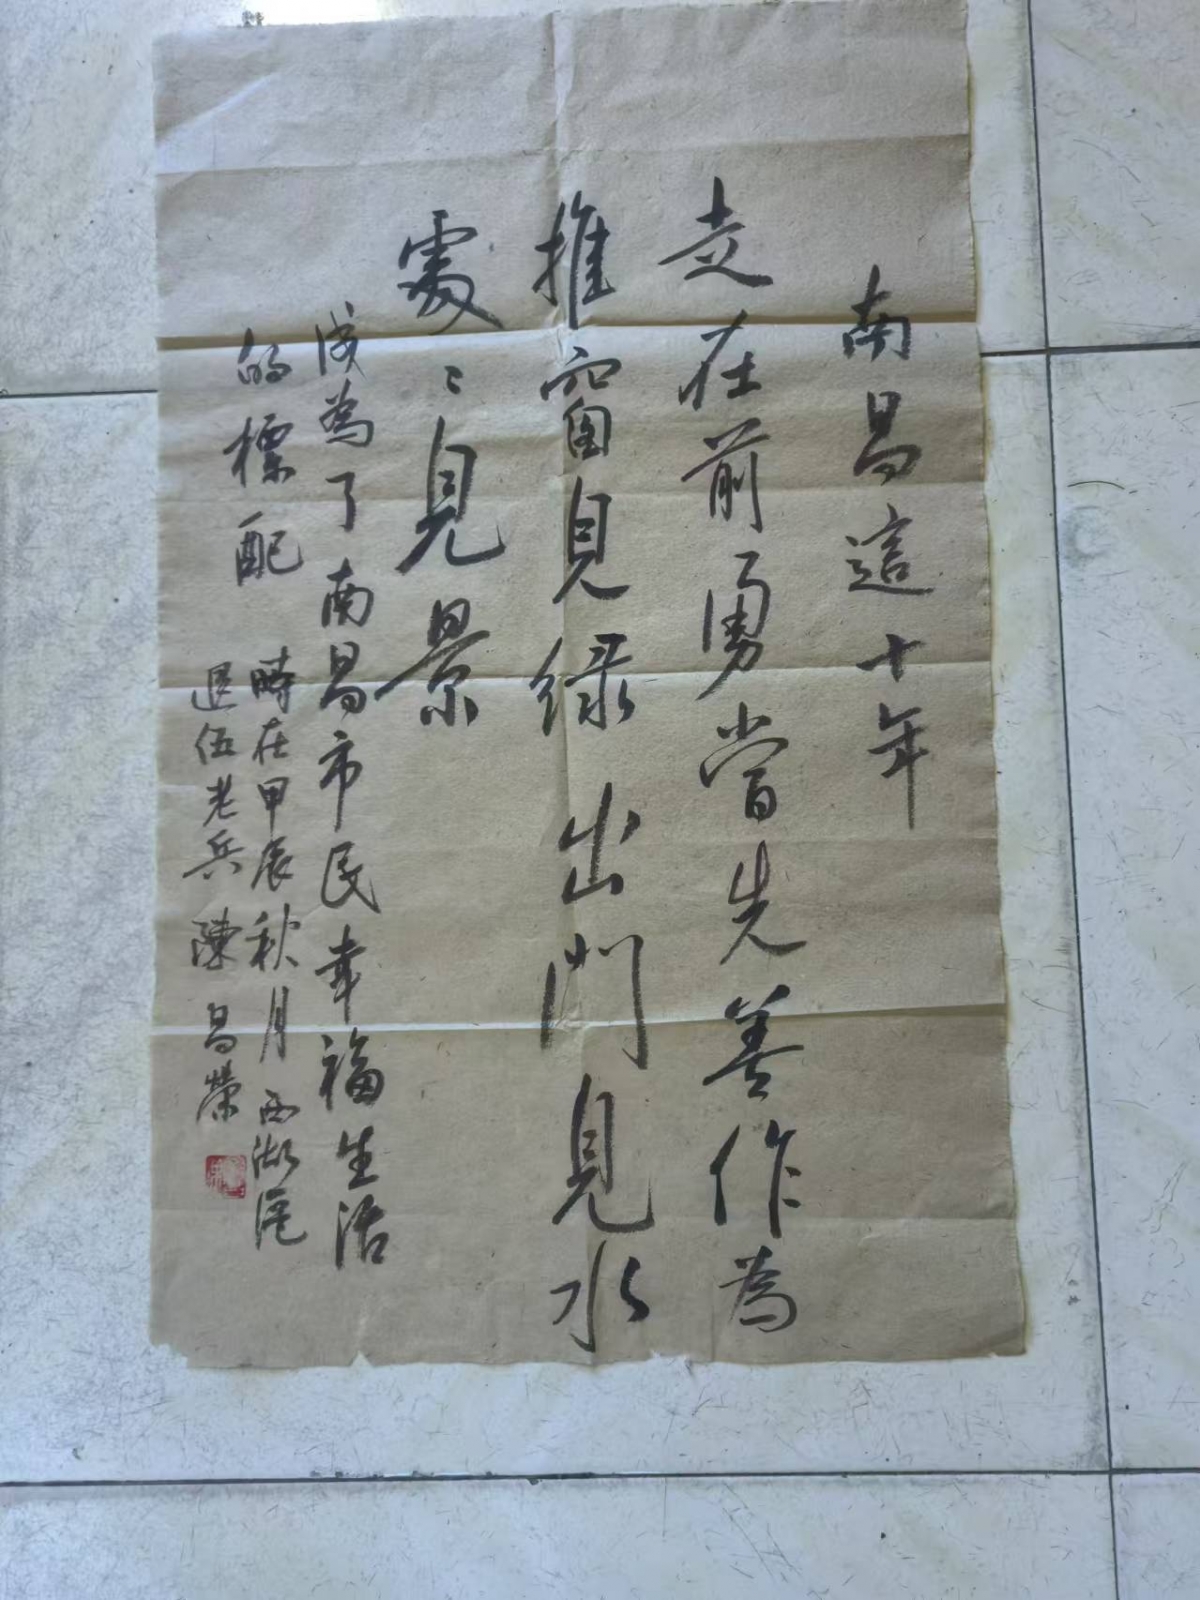 南昌這十年
走在前勇當先善作為
推窗見绿出門見水
處〻見景
成為了南昌市民幸福生活
的標配
時在甲辰秋月西湖區
退伍老兵陳昌榮